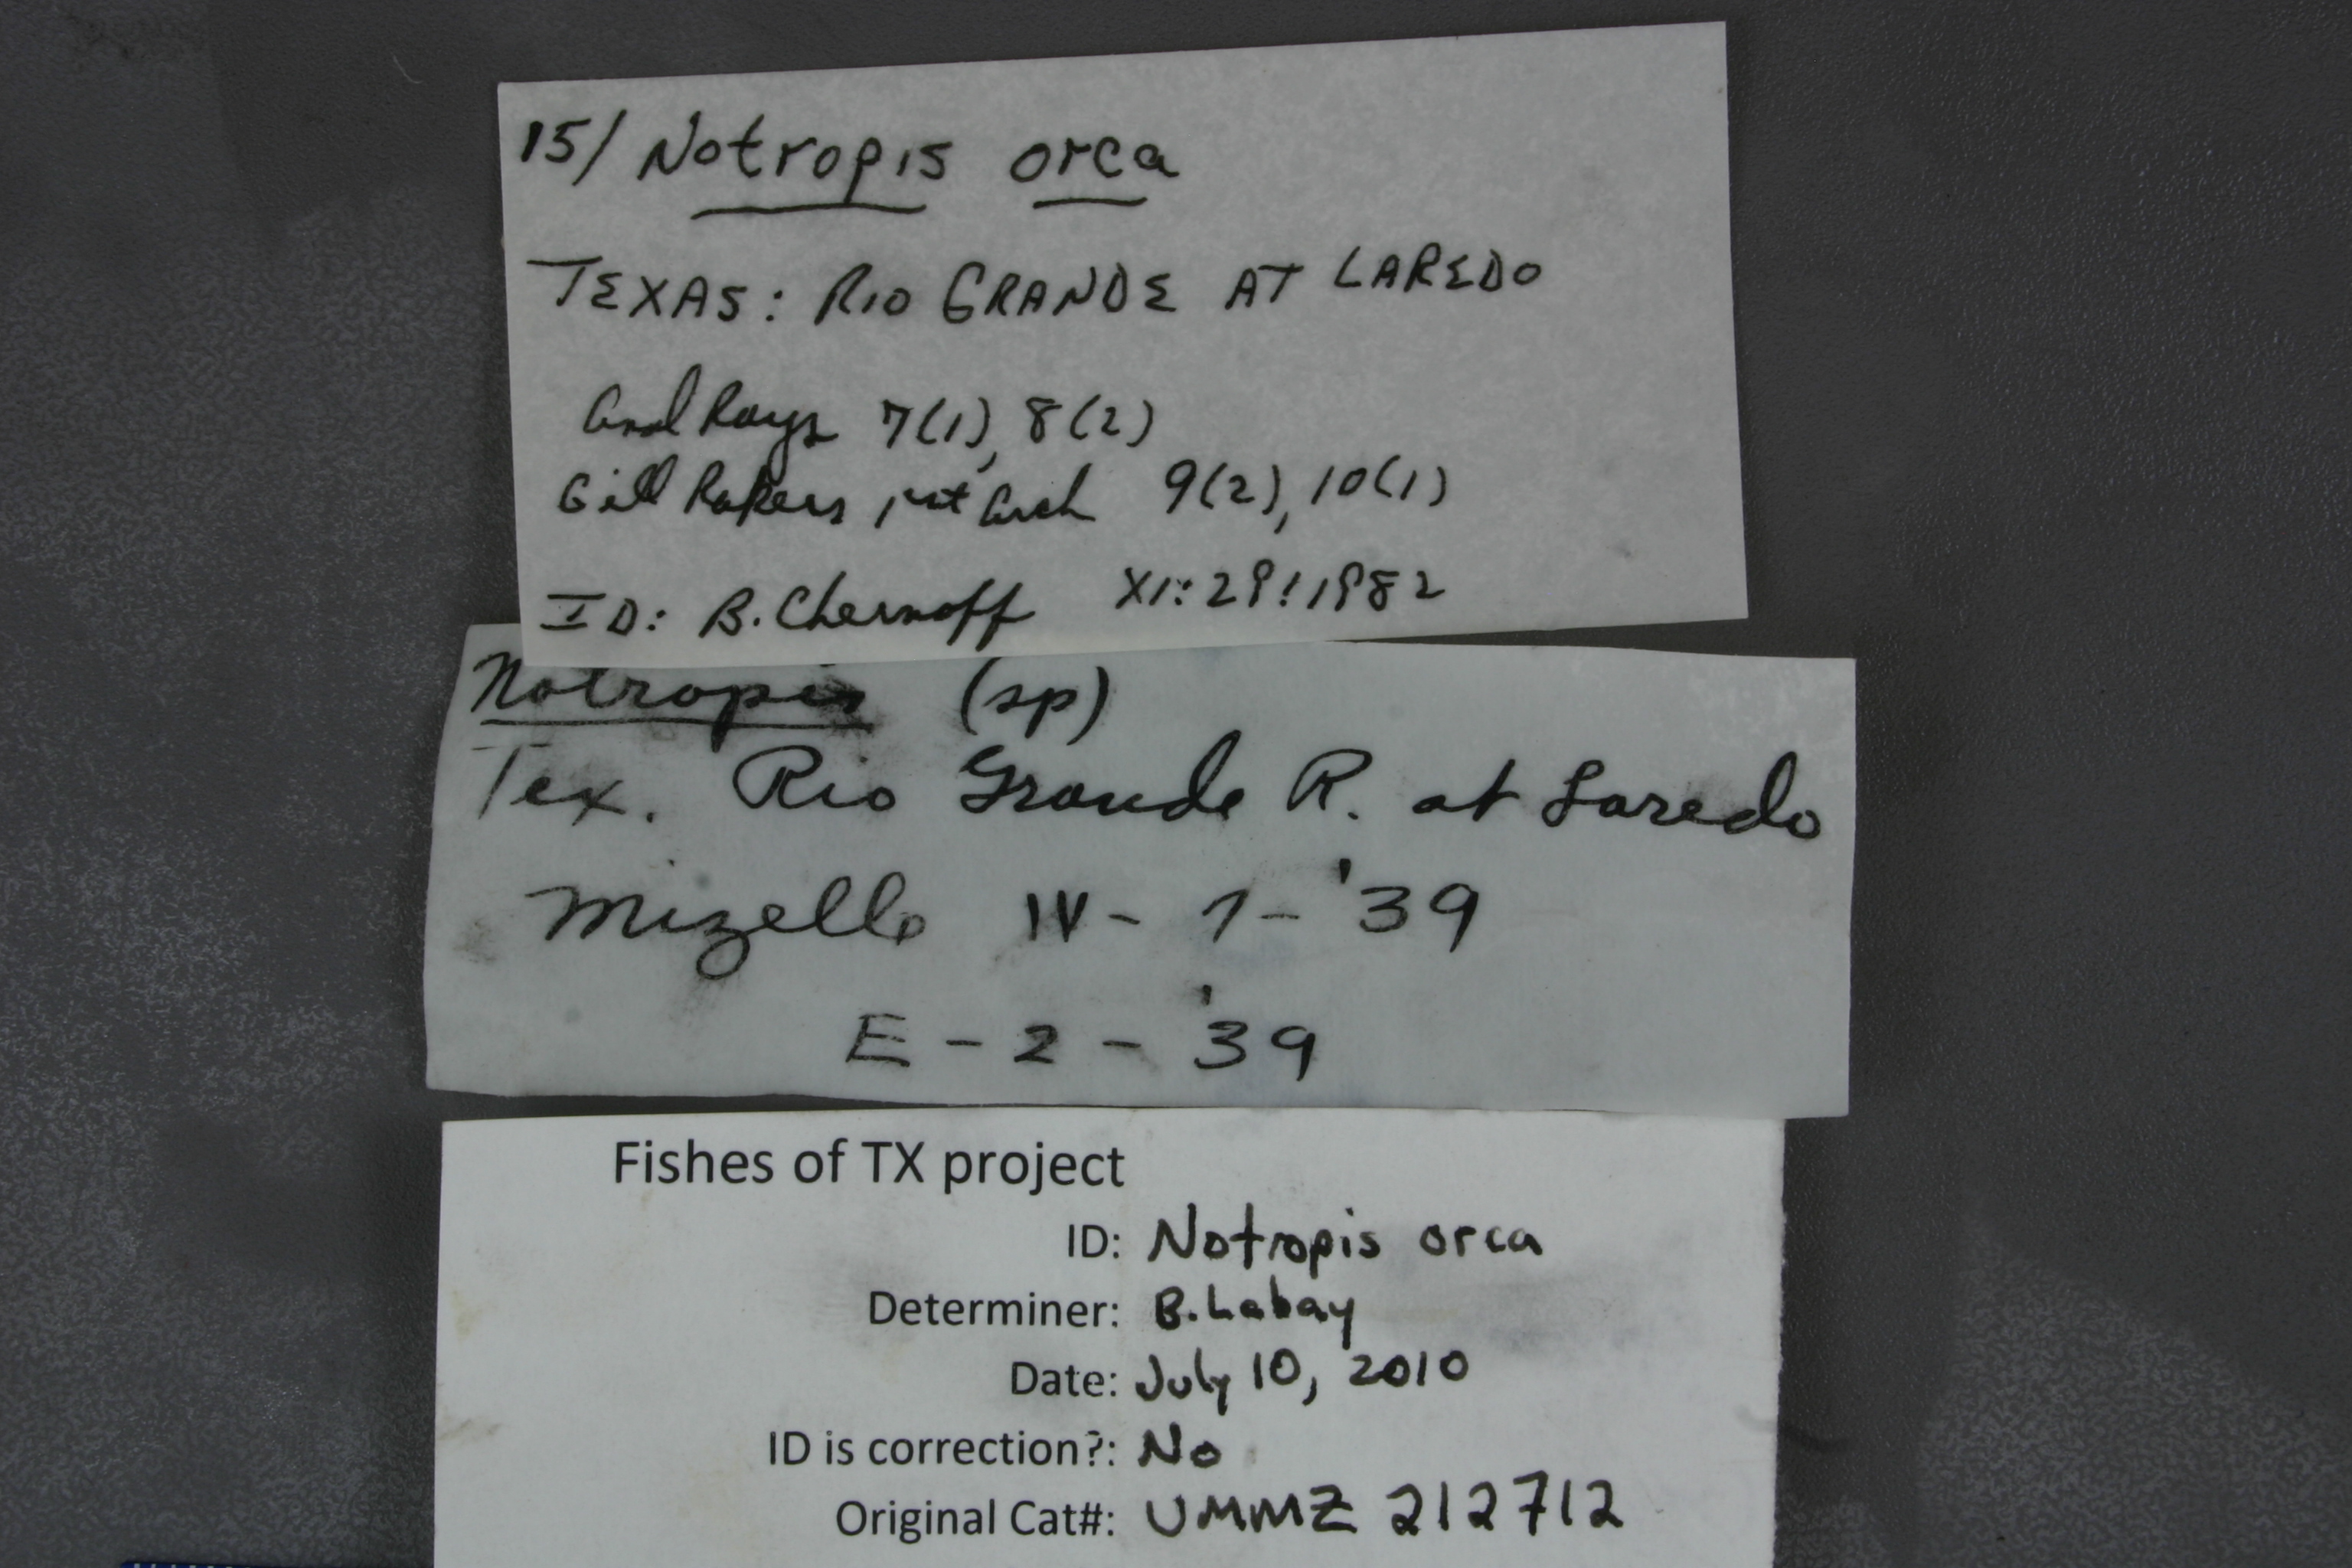 15/ Notropis orca
TEXAS: RIO GRANDE AT LAREDO
Anal Rays 7(1), 8(2)
Gill Rakers 1st Arch 9(2), 10(1)
ID: B. Chernoff XI:29:1982
Notropis (sp)
Tex. Rio Grande R. at Laredo
Mizelle IV- 7- '39
E - 2 - '39
Fishes of TX project
ID: Notropis orca
Determiner: B. Labay
Date: July 10, 2010
ID is correction?: No
Original Cat#: UMMZ 212712